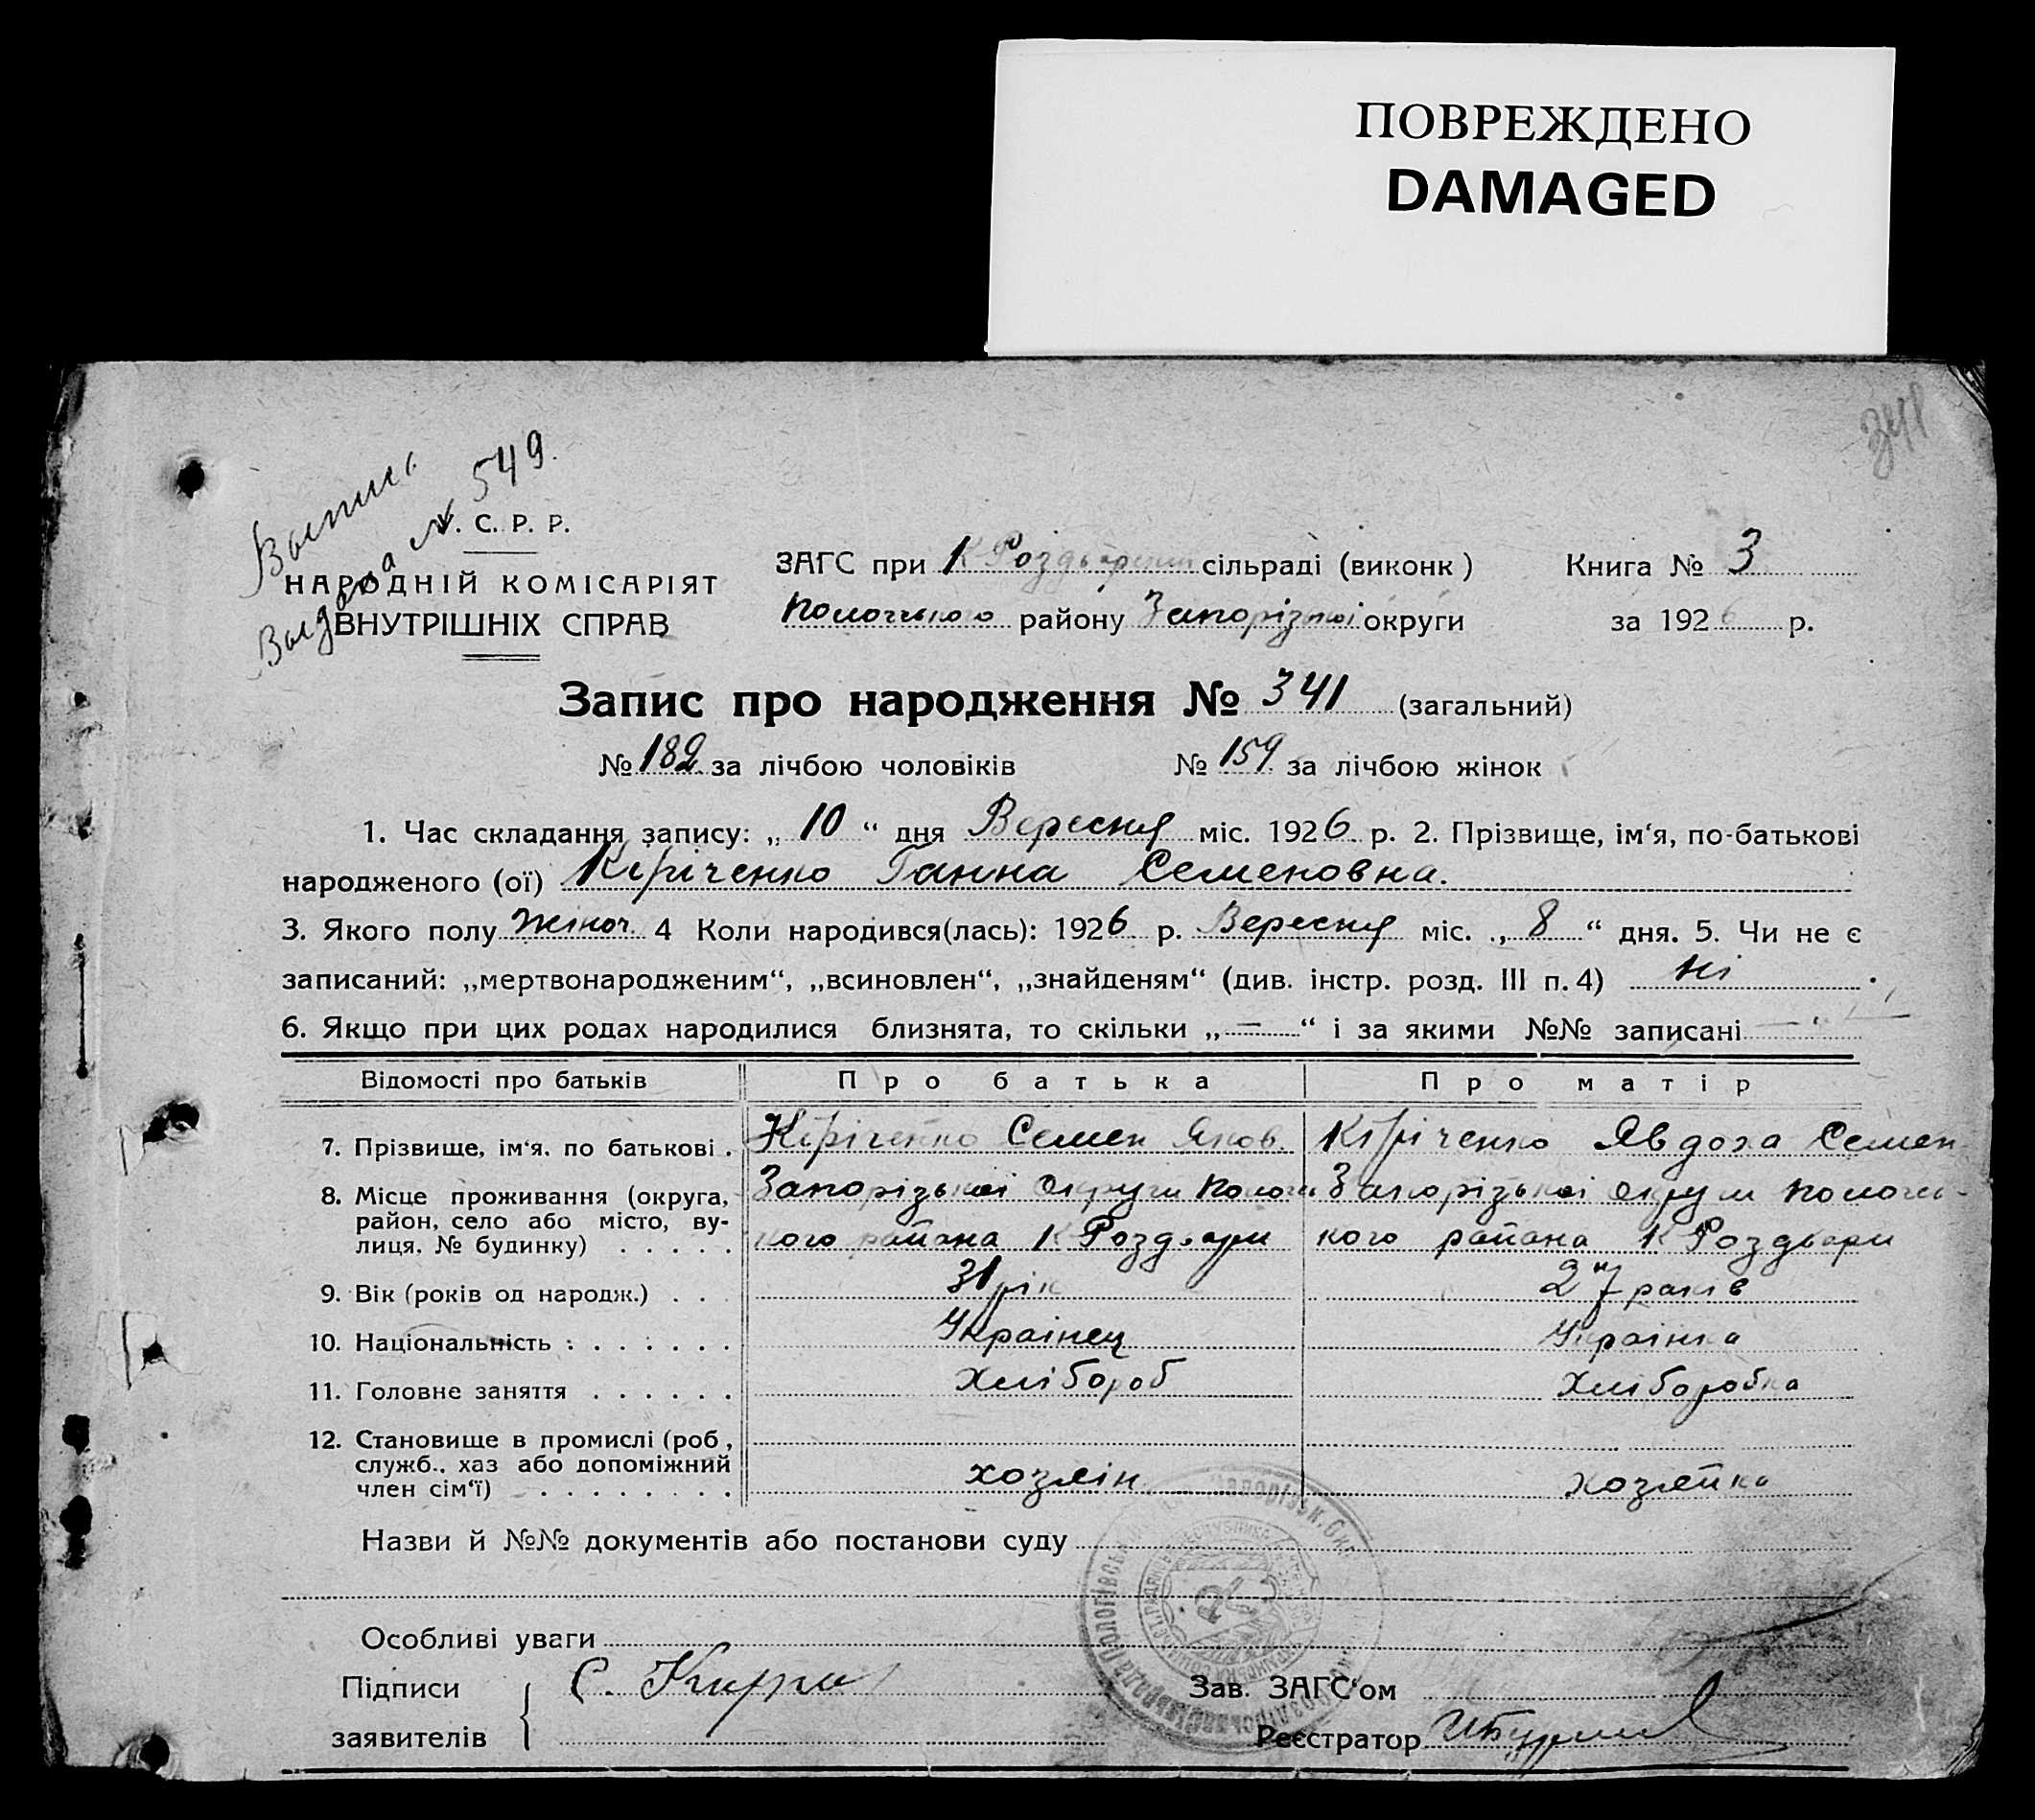 ПОВРЕЖДЕНО
DAMAGED
341
Выпись
Выдана № 549.
У. С. Р. Р.
НАРОДНІЙ КОМІСАРІЯТ
ВНУТРІШНІХ СПРАВ
ЗАГС при К Роздорській сільраді (виконк) Книга № 3
Пологського району Запорізької округи за 1926 р.
Запис про народження № 341 (загальний)
№ 182 за лічбою чоловіків № 159 за лічбою жінок
1. Час складання запису: „ 10 “ дня Вересня міс. 1926 р. 2. Прізвище, ім‘я, по-батькові
народженого (ої) Кіріченко Ганна Семеновна.
3. Якого полу жіноч. 4 Коли народився(лась): 1926 р. Вересня міс. „ 8 “ дня. 5. Чи не є
записаний: „мертвонародженим“, „всиновлен“, „знайденям“ (див. інстр. розд. III п. 4) ні
6. Якщо при цих родах народилися близнята, то скільки „ — “ і за якими №№ записані — “
Відомості про батьків Про батька Про матір
7. Прізвище, ім‘я, по батькові . Кіріченко Семен Яков. Кіріченко Явдоха Семен
8. Місце проживання (округа, район, село або місто, ву-
лиця, № будинку) . . . . .
Запорізької округи Пологс Запорізької округи Пологсь-
кого района К Роздори кого района К Роздори
9. Вік (років од народж.) . . . 31 рік 27 років
10. Національність : . . . . . . Українец Українка
11. Головне заняття . . . . . . Хлібороб Хліборобка
12. Становище в промислі (роб,
служб., хаз або допоміжний
член сім‘ї) . . . . . . . . хозяін. хозяйка
Назви й №№ документів або постанови суду
Особливі уваги
Підписи
заявителів
С.
Зав. ЗАГС‘ом
Реєстратор